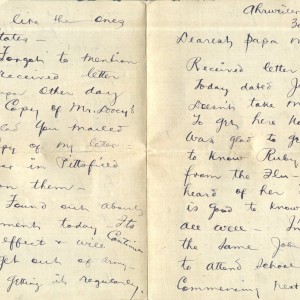 like the ones
States -
Forgot to mention
received letter
other day
Copy of Mr.
you mailed
Copy of my letter -
in Pittsfield
on them -
Found out about
ments today Its
effect & will Continue
get out of army -
getting it regularly.
Ahrweiler
Dearest Papa
Received letter
Today dated
Doesn't take
To get here
Was glad to
to know Ruby
from the Flu -
heard of her
is good to know
are well -
the same
to attend School
Commencing next